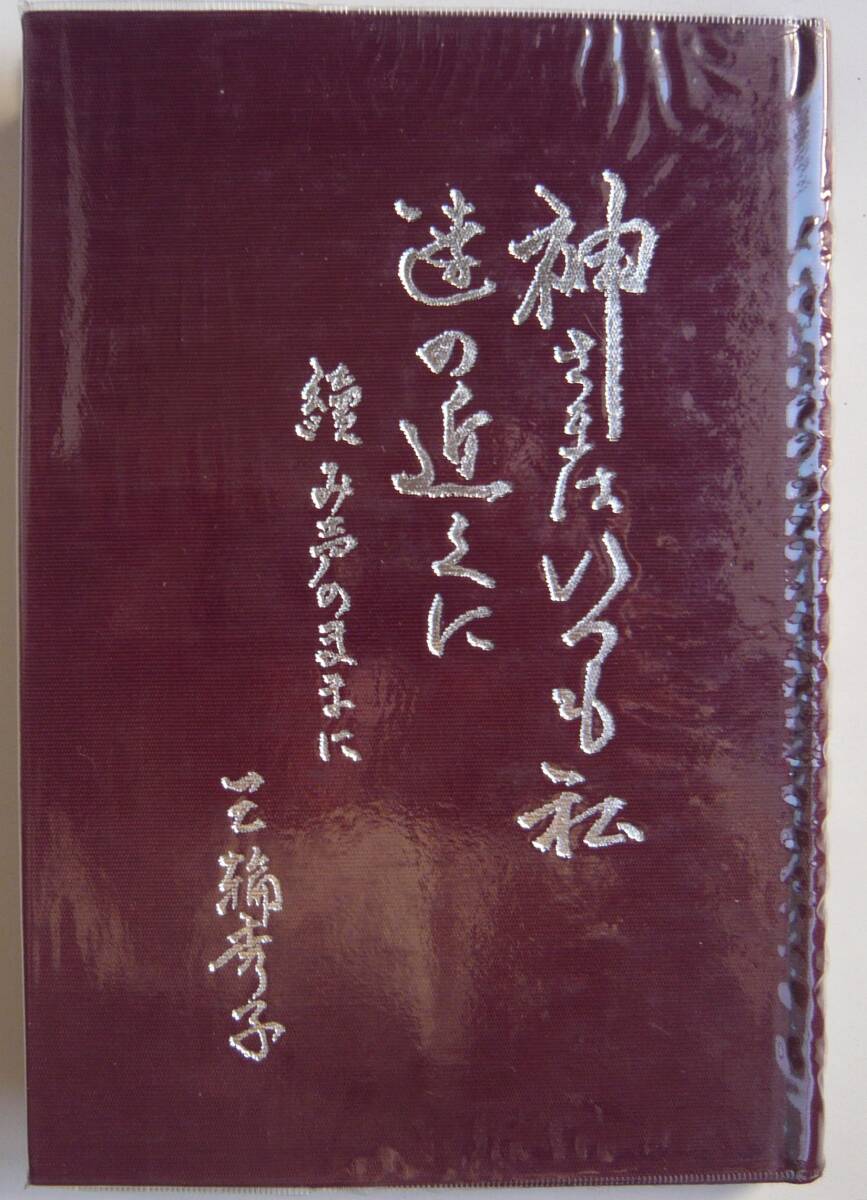 神さまはいつも私
達の近くに
續 み声のまゝに
三輪秀子